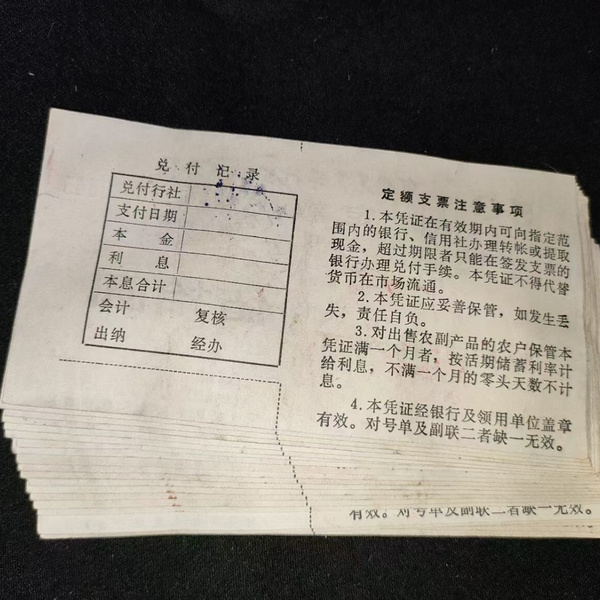 兑付记录
兑付行社
支付日期
本 金
利 息
本息合计
会计 复核
出纳 经办
定额支票注意事项
1.本凭证在有效期内可向指定范
围内的银行、信用社办理转帐或提取
现金，超过期限者只能在签发支票的
银行办理兑付手续。本凭证不得代替
货币在市场流通。
2.本凭证应妥善保管，如发生丢
失，责任自负。
3.对出售农副产品的农户保管本
凭证满一个月者，按活期储蓄利率计
给利息，不满一个月的零头天数不计
息。
4.本凭证经银行及领用单位盖章
有效。对号单及副联二者缺一无效。
有效。对号单及副联二者缺一无效。